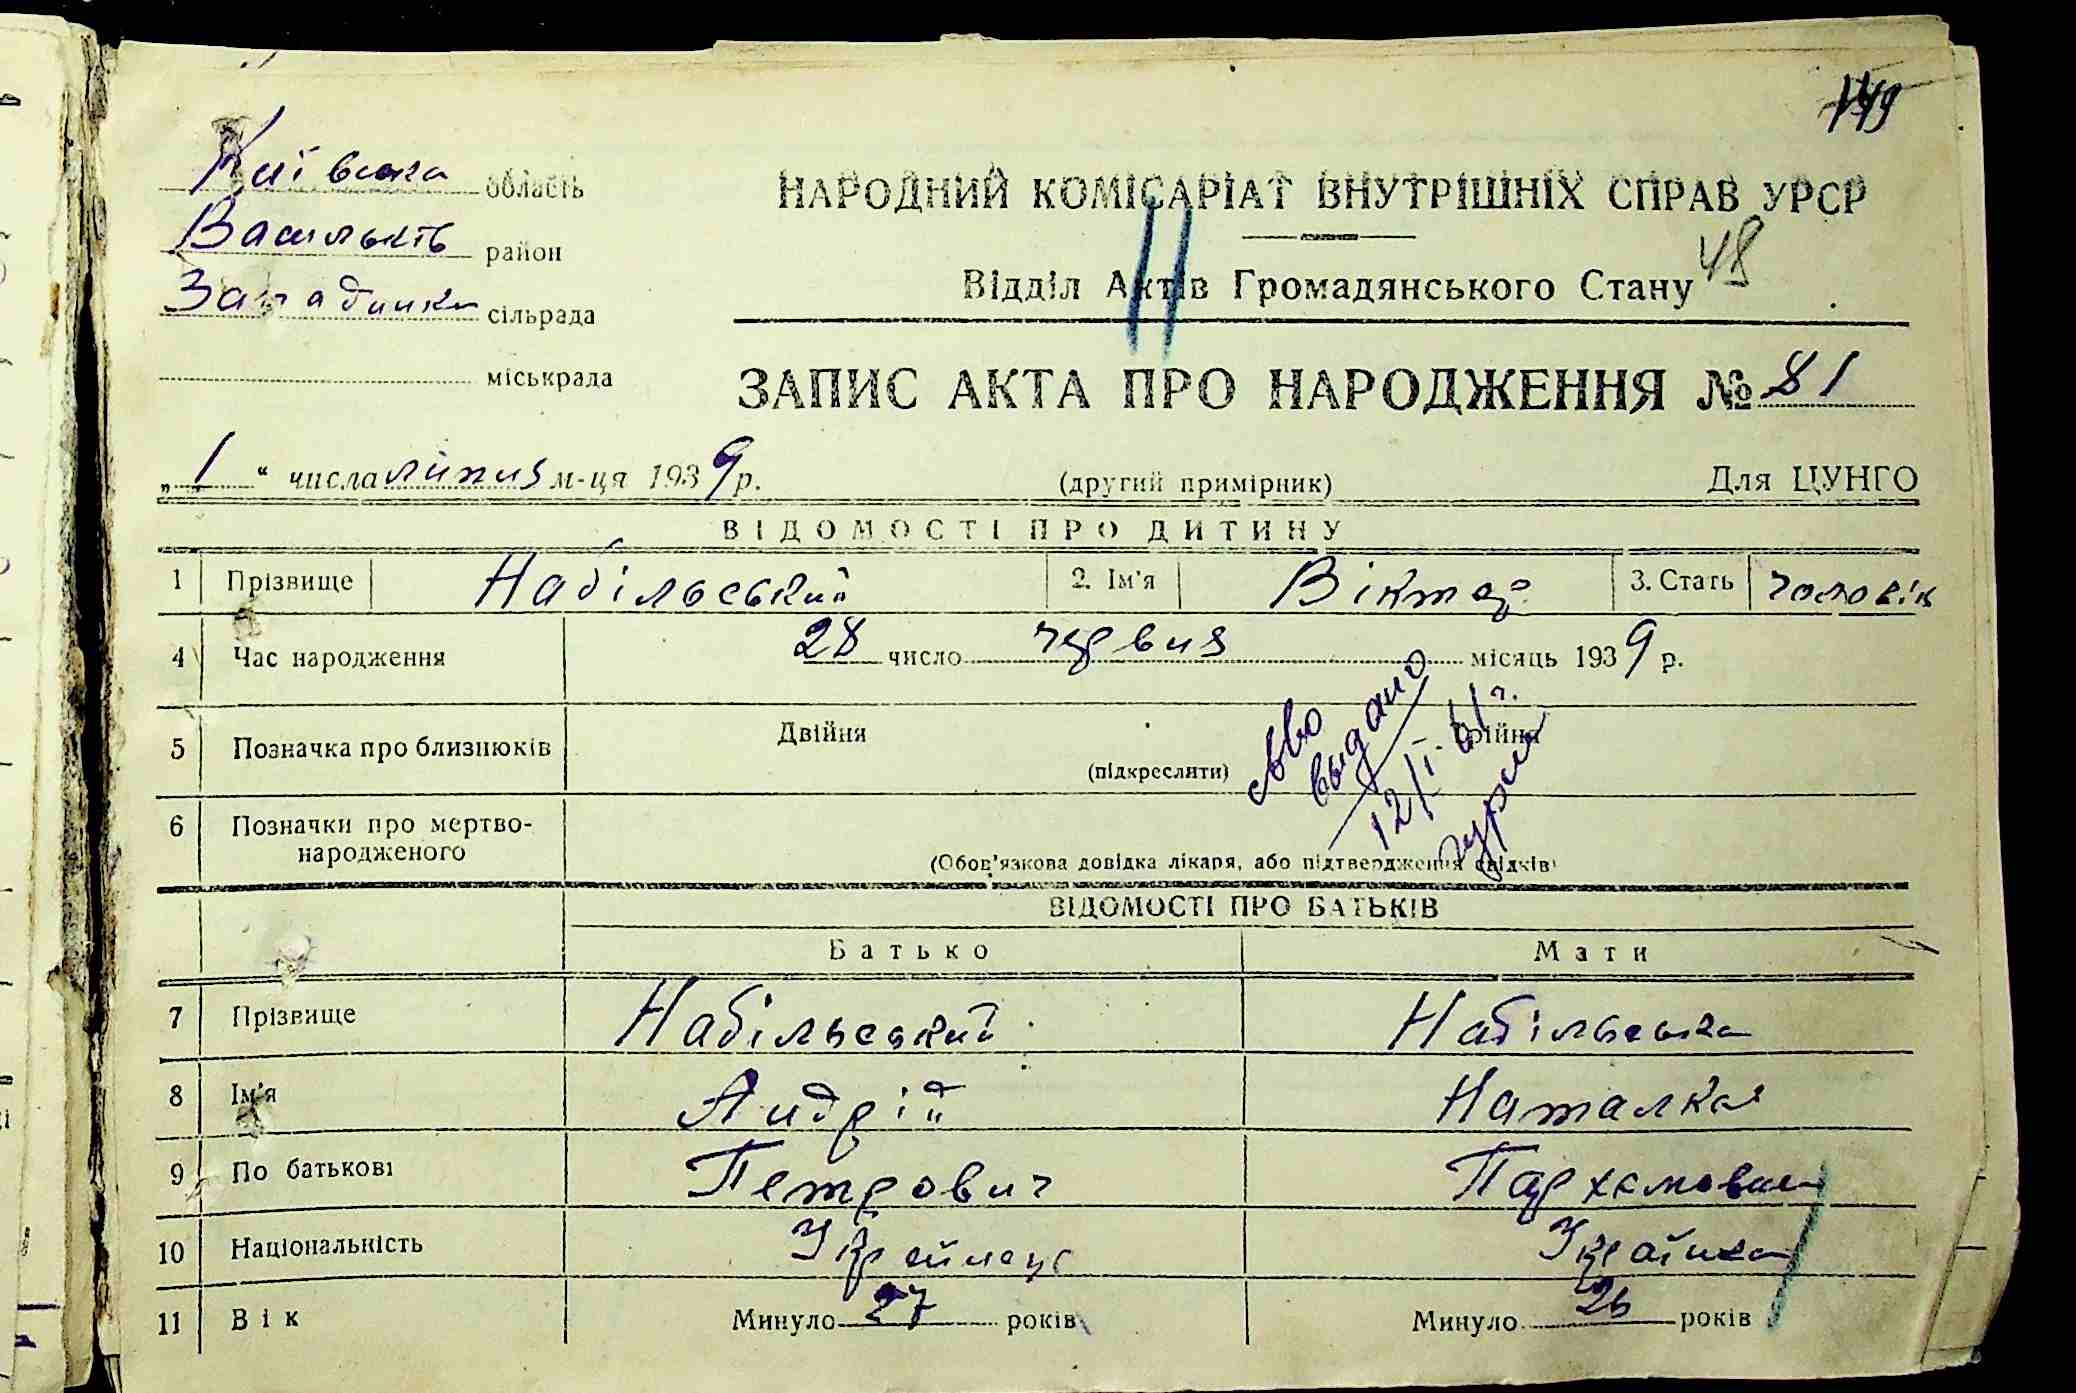 149
Київська область
Васильків район
сільрада
міськрада
НАРОДНИЙ КОМІСАРІАТ ВНУТРІШНІХ СПРАВ УРСР
48
Відділ Актів Громадянського Стану
ЗАПИС АКТА ПРО НАРОДЖЕННЯ № 81
„ 1 “ числа липня м-ця 1939 р. (другий примірник) Для ЦУНГО
ВІДОМОСТІ ПРО ДИТИНУ
1 Прізвище Набільський 2. Ім'я Віктор 3. Стать чоловік
4 Час народження 28 число червня місяць 1939 р.
5 Позначка про близнюків Двійня (підкреслити) Трійня
с-во
выдано
12/I-61 г.
6 Позначки про мертво-
народженого
(Обов'язкова довідка лікаря, або підтвердження свідків)
ВІДОМОСТІ ПРО БАТЬКІВ
Батько Мати
7 Прізвище Набільський Набільська
8 Ім'я Андрій Наталка
9 По батькові Петрович Пархомовна
10 Національність Українець Українка
11 Вік Минуло 27 років Минуло 26 років